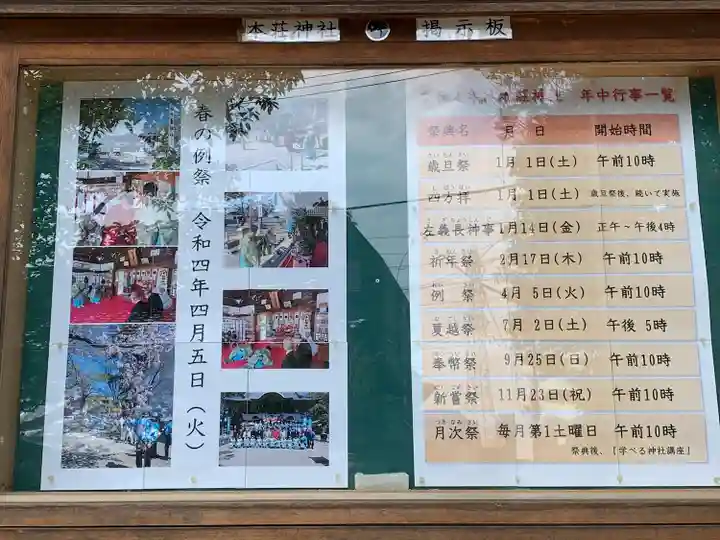 本荘神社 掲示板
春の例祭 令和四年四月五日(火)
年中行事一覧
祭典名 月 日 開始時間
歳旦祭 1月 1日(土) 午前10時
四方拝 1月 1日(土) 歳旦祭後、続いて実施
左義長神事 1月14日(金) 正午~午後4時
祈年祭 2月17日(木) 午前10時
例 祭 4月 5日(火) 午前10時
夏越祭 7月 2日(土) 午後 5時
奉幣祭 9月25日(日) 午前10時
新嘗祭 11月23日(祝) 午前10時
月次祭 毎月第1土曜日 午前10時
祭典後、『学べる神社講座』